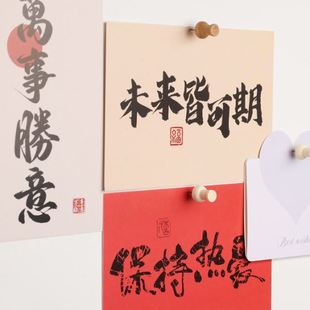 萬事勝意
未来皆可期
保持热爱
Best wishes